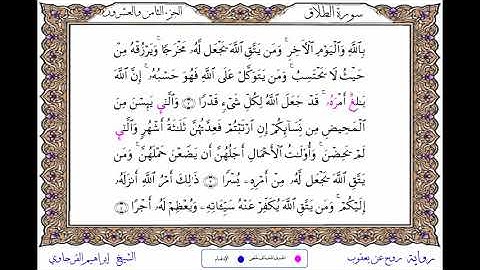 سورة الطلاق
الجزء الثامن والعشرون
بِاللَّهِ وَالْيَوْمِ الْآخِرِ ۚ وَمَن يَتَّقِ اللَّهَ يَجْعَل لَّهُ مَخْرَجًا ۝ وَيَرْزُقْهُ مِنْ
حَيْثُ لَا يَحْتَسِبُ ۚ وَمَن يَتَوَكَّلْ عَلَى اللَّهِ فَهُوَ حَسْبُهُ ۚ إِنَّ اللَّهَ
بَالِغٌ أَمْرَهُ ۚ قَدْ جَعَلَ اللَّهُ لِكُلِّ شَيْءٍ قَدْرًا ۝ وَالَّتِي يَئِسْنَ مِنَ
الْمَحِيضِ مِن نِّسَائِكُمْ إِنِ ارْتَبْتُمْ فَعِدَّتُهُنَّ ثَلَاثَةُ أَشْهُرٍ وَالَّتِي
لَمْ يَحِضْنَ ۚ وَأُولَاتُ الْأَحْمَالِ أَجَلُهُنَّ أَن يَضَعْنَ حَمْلَهُنَّ ۚ وَمَن
يَتَّقِ اللَّهَ يَجْعَل لَّهُ مِنْ أَمْرِهِ يُسْرًا ۝ ذَٰلِكَ أَمْرُ اللَّهِ أَنزَلَهُ
إِلَيْكُمْ ۚ وَمَن يَتَّقِ اللَّهَ يُكَفِّرْ عَنْهُ سَيِّئَاتِهِ وَيُعْظِمْ لَهُ أَجْرًا ۝
رواية روح عن يعقوب
الإدغام
الشيخ إبراهيم الفرجاوي